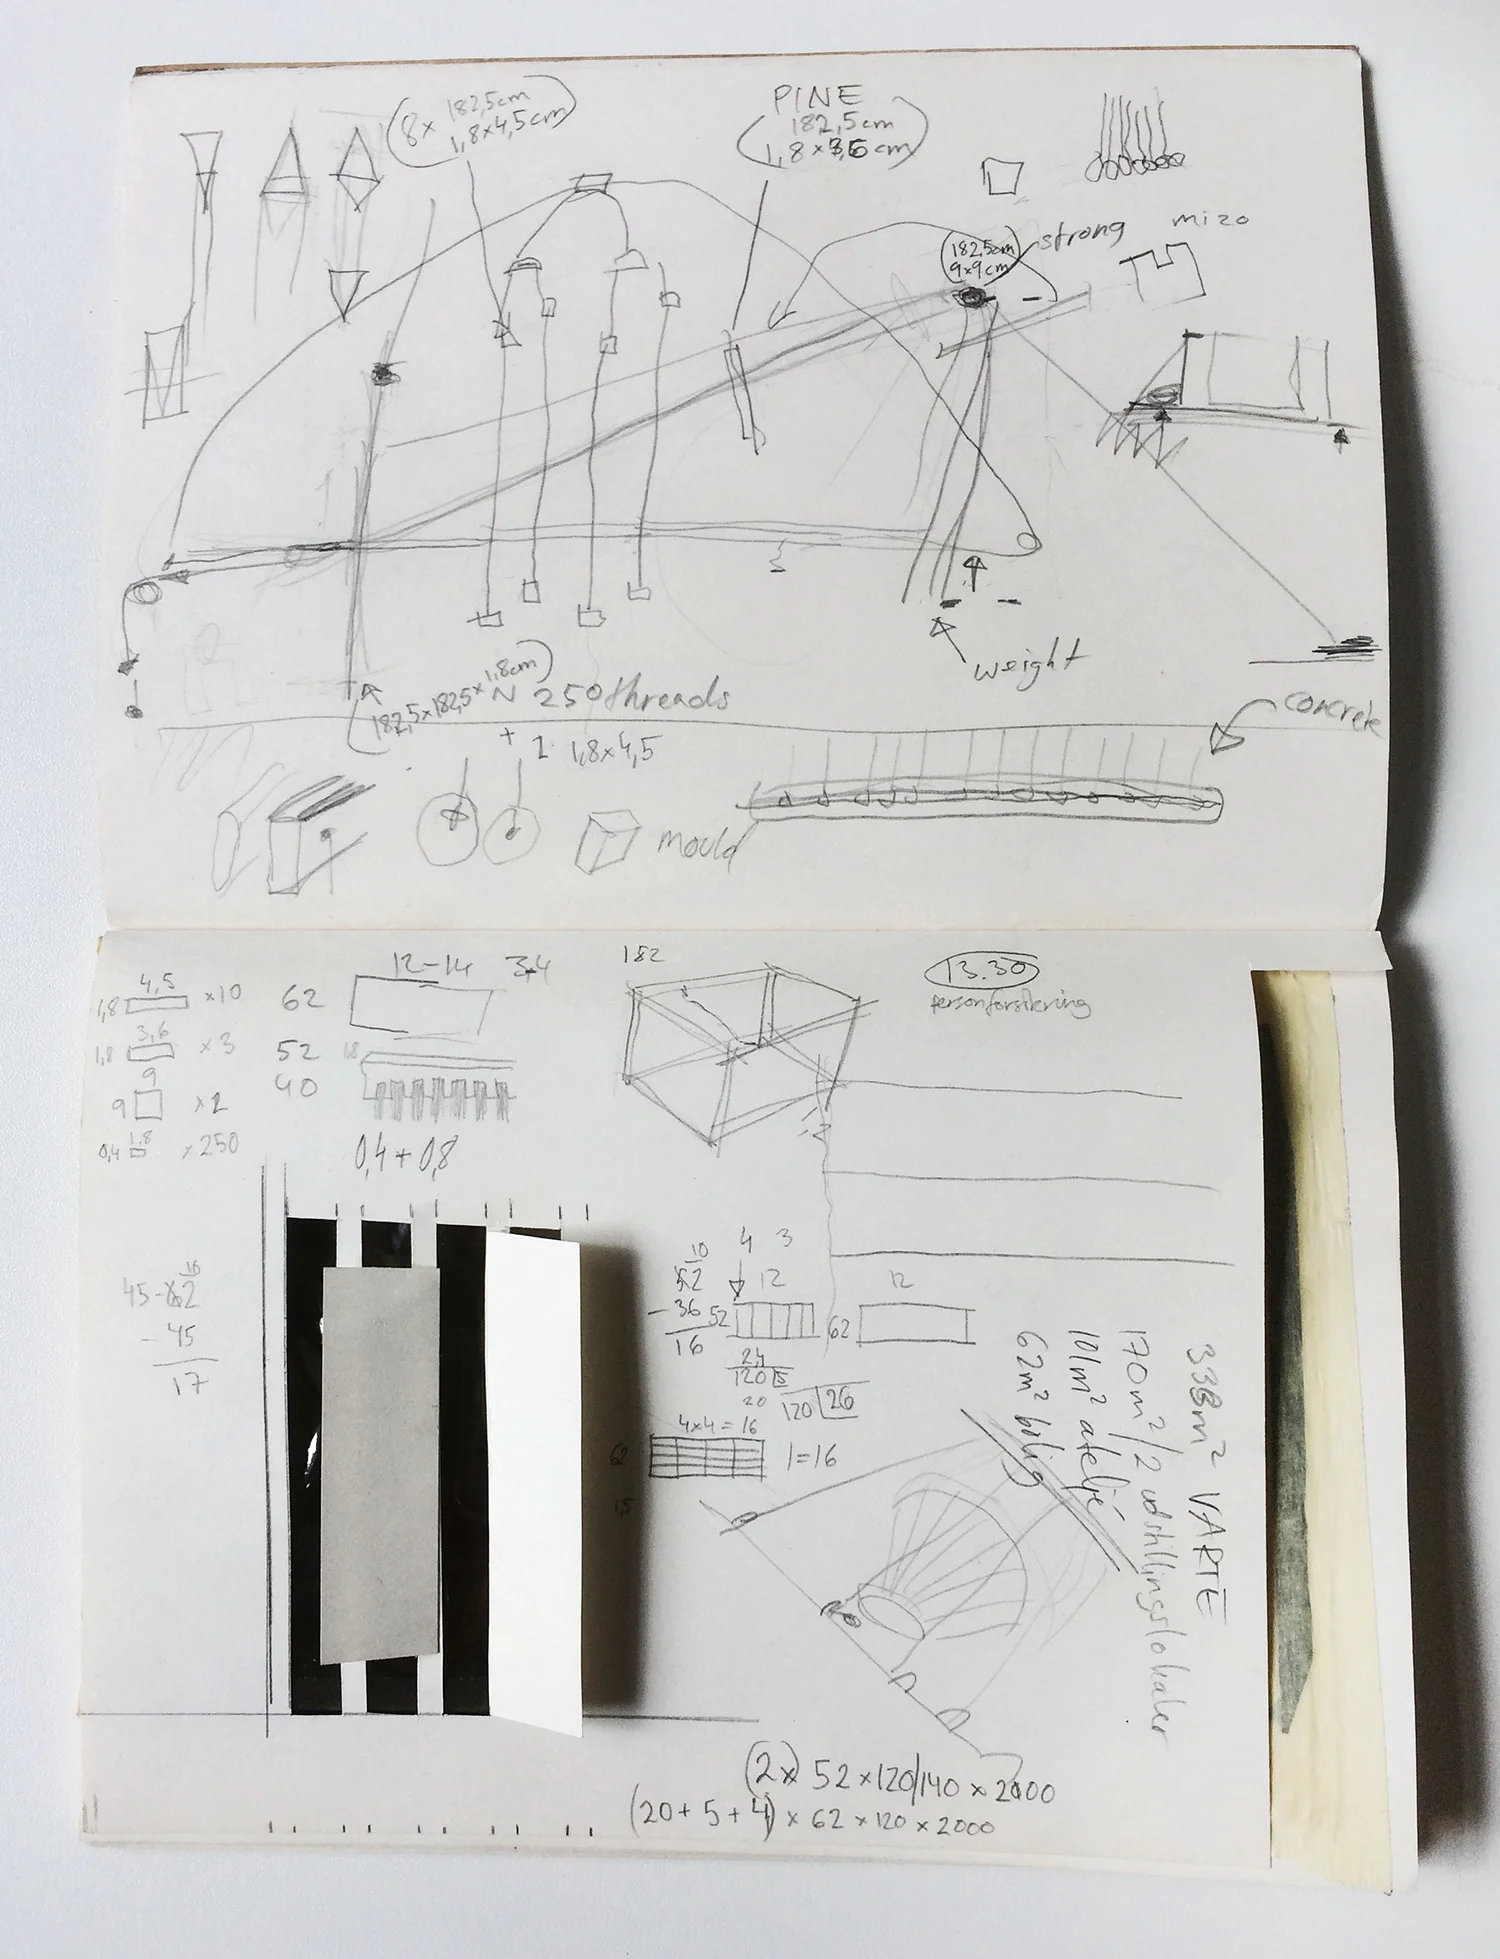 8x 182,5cm
1,8x4,5cm
PINE
182,5cm
1,8x3,6cm
182,5cm
9x9cm
strong
mizo
weight
182,5x182,5x1,8cm
~ 250 threads
+ 2 1,8x4,5
concrete
mould
4,5
1,8 x10
3,6
1,8 x3
9
9 x2
1,8
0,4 x250
12-14 3,4
62
52 1,8
40
0,4 + 0,8
182
13.30
45-62
- 45
17
10 4 3
52 12 12
- 36 52 62
16
2,4
120 5
20
120 26
4x4=16
62 1=16
15
338m² VARTE
170m²/2 udstillingslokaler
101m² ateljé
62m² bolig
(2x) 52x120/140 x 2000
(20+5+4) x 62 x 120 x 2000